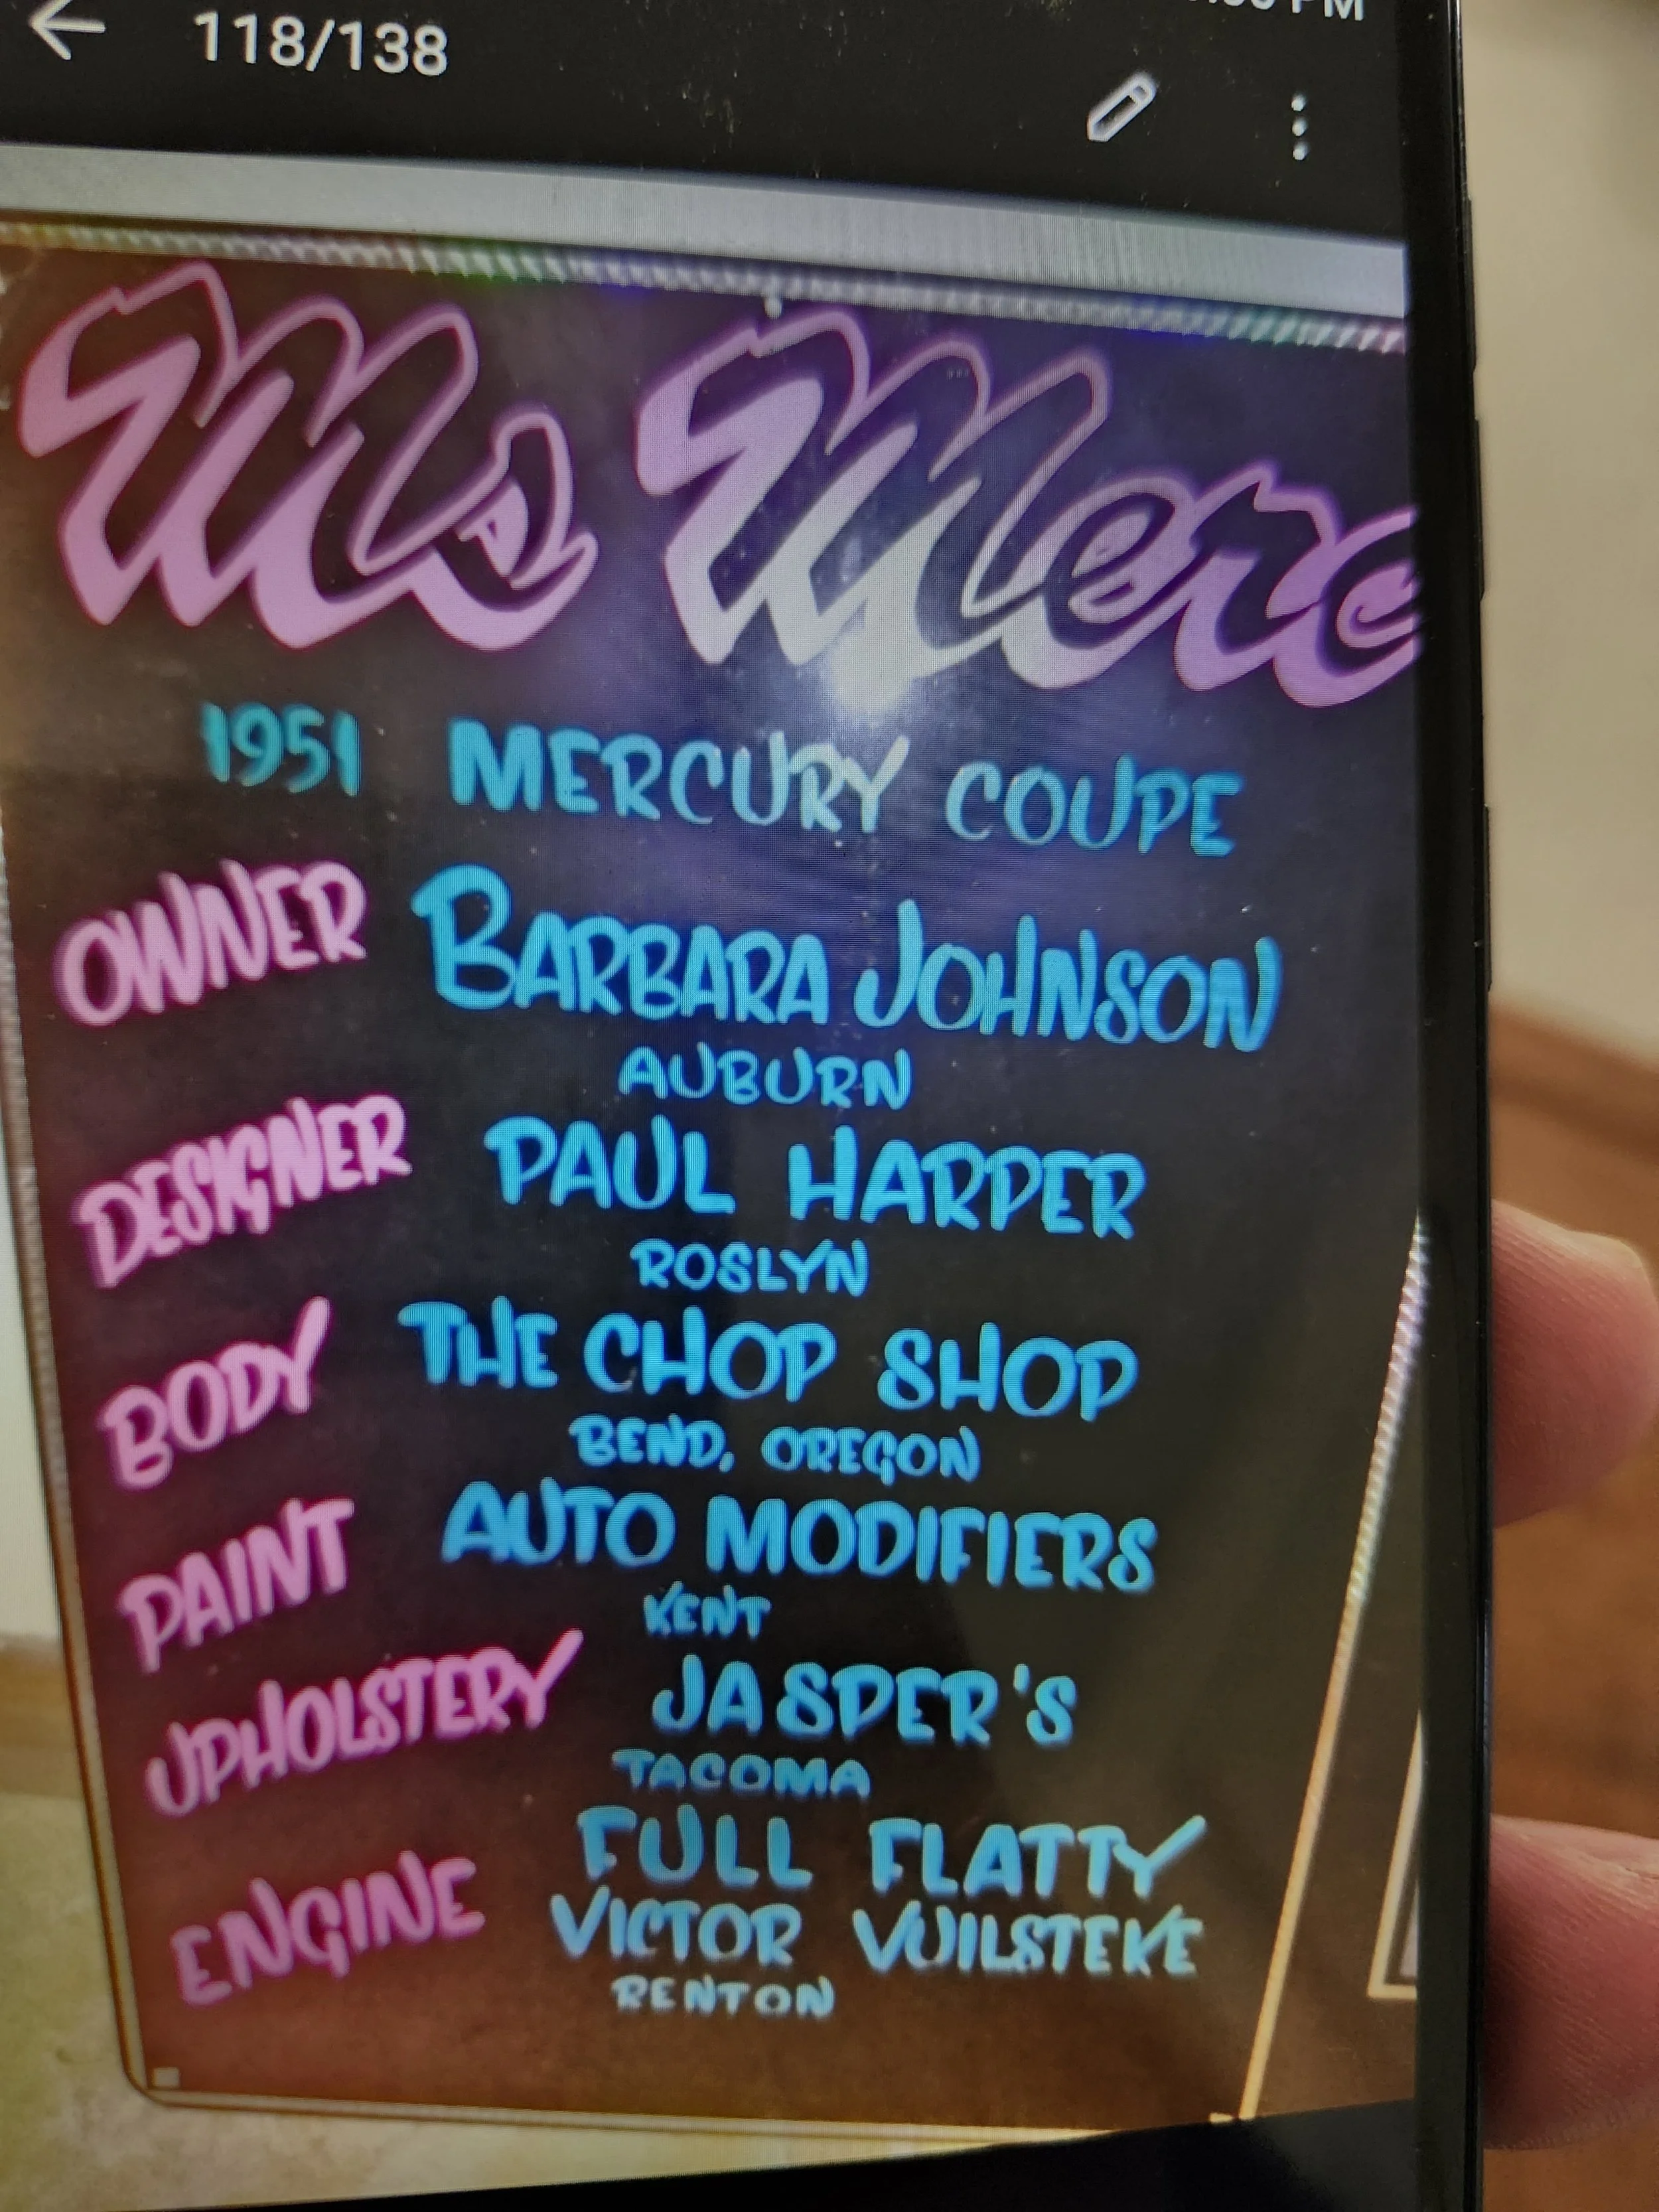 118/138
PM
Ms Merc
1951 MERCURY COUPE
OWNER BARBARA JOHNSON
AUBURN
DESIGNER PAUL HARPER
ROSLYN
BODY THE CHOP SHOP
BEND, OREGON
PAINT AUTO MODIFIERS
KENT
UPHOLSTERY JASPER'S
TACOMA
ENGINE FULL FLATTY
VICTOR VUILSTEKE
RENTON